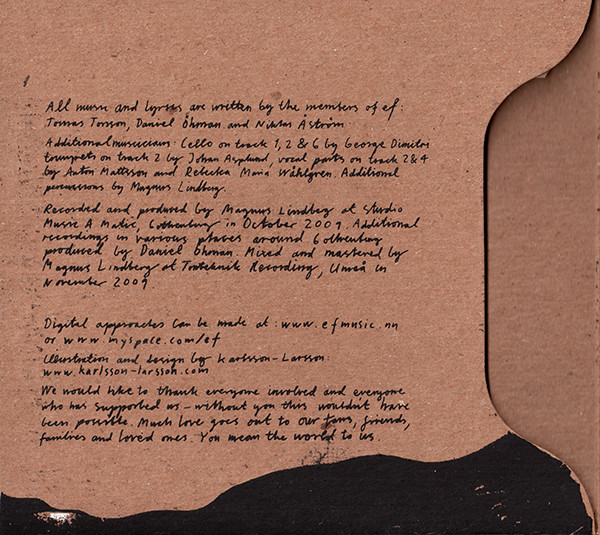 All music and lyrics are written by the members of ef:
Tomas Torsson, Daniel Öhman and Niklas Åström
Additional musicians: Cello on track 1, 2 & 6 by George Dimitri
trumpets on track 2 by Johan Asplund, vocal parts on track 2 & 4
by Anton Mattsson and Rebecka Maria Wåhlgren. Additional
percussions by Magnus Lindberg.
Recorded and produced by Magnus Lindberg at Studio
Music A Matic, Gothenburg in October 2009. Additional
recordings in various places around Gothenburg
produced by Daniel Öhman. Mixed and mastered by
Magnus Lindberg at Tonteknik Recording, Umeå in
November 2009
Digital approaches can be made at: www.efmusic.nu
or www.myspace.com/ef
Illustration and design by Karlsson-Larsson:
www.karlsson-larsson.com
We would like to thank everyone involved and everyone
who has supported us - without you this wouldnt have
been possible. Much love goes out to our fans, friends,
families and loved ones. You mean the world to us.